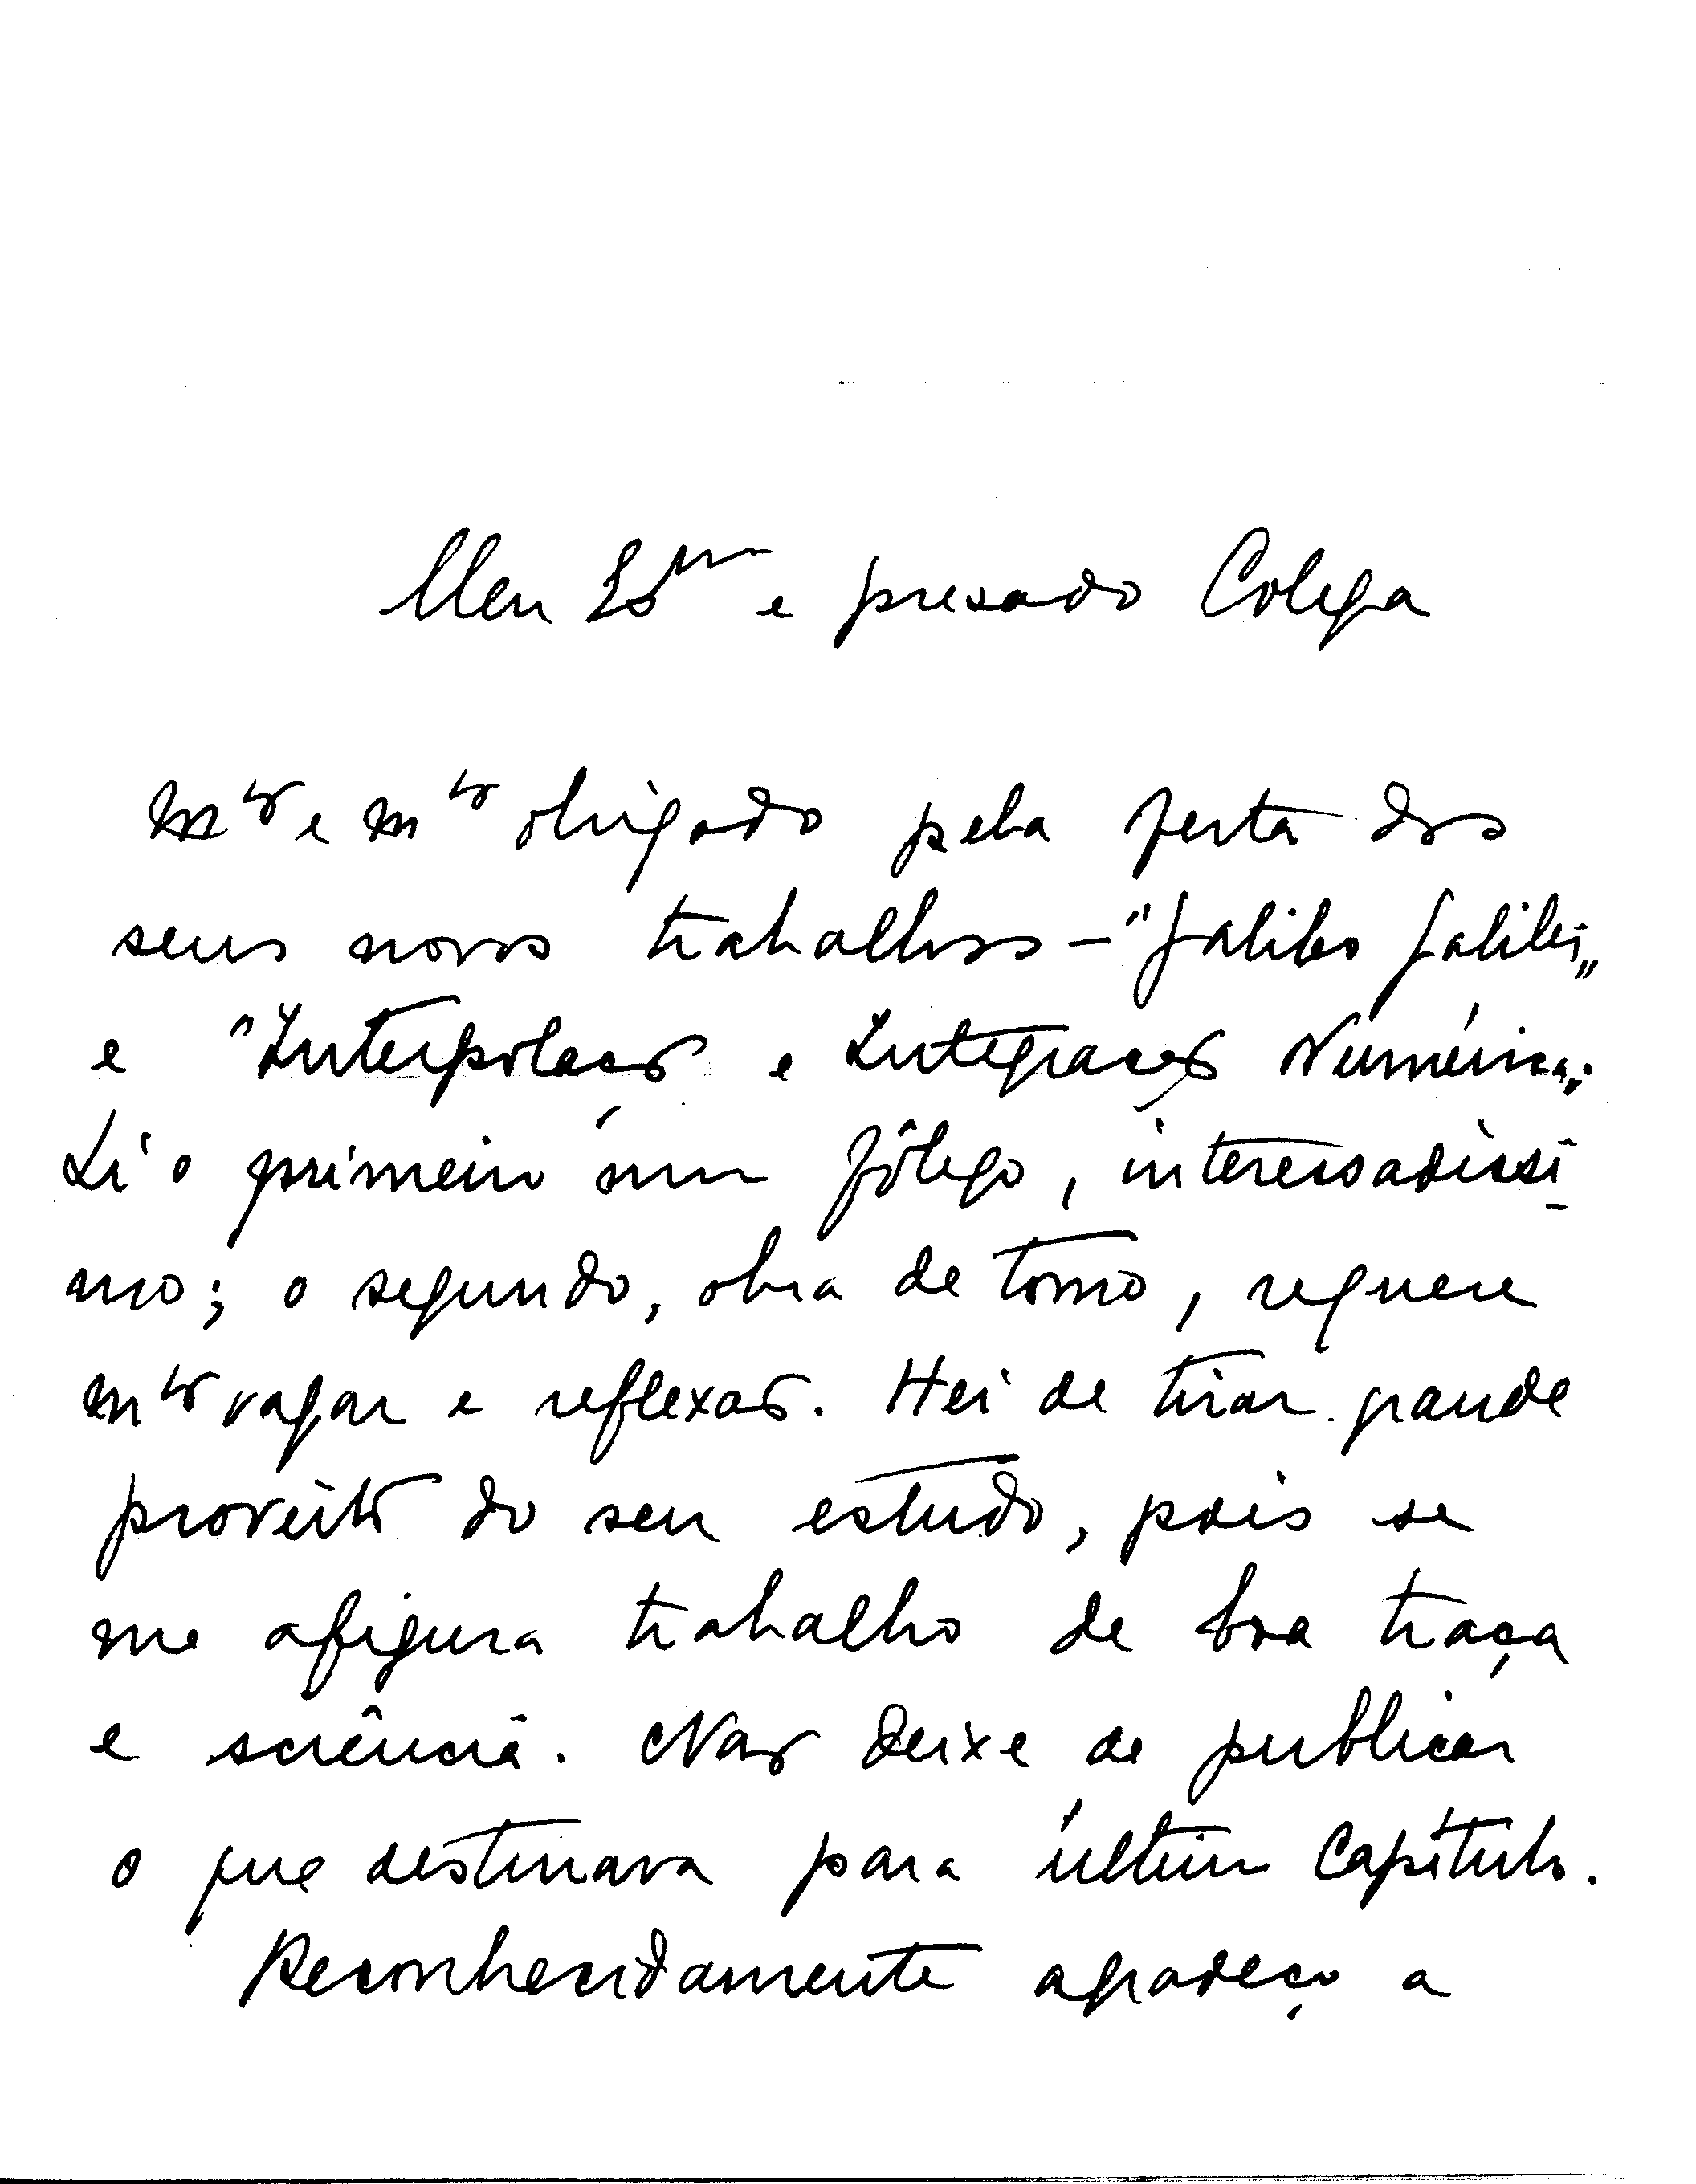 Meu Bom e presado Colega
mto e mto obrigado pela festa dos
seus novos trabalhos - "Galileo Galilei"
e "Interpolação e Integração Numérica".
Li o primeiro num fôlego, interessadissi-
mo; o segundo, obra de tomo, requere
mto vagar e reflexão. Hei de tirar grande
proveito do seu estudo, pois se
me afigura trabalho de boa traça
e sciência. Não deixe de publicar
o que destinava para último Capítulo.
Reconhecidamente agradeço a